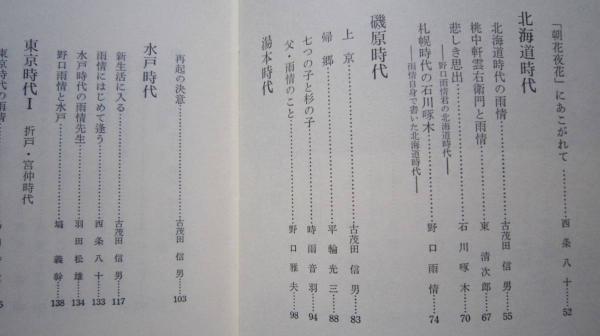 「朝花夜花」にあこがれて……………西条八十……52
北海道時代
北海道時代の雨情……………古茂田信男……55
桃中軒雲右衛門と雨情……………東清次郎……67
悲しき思出……………石川啄木……70
――野口雨情君の北海道時代――
札幌時代の石川啄木……………野口雨情……74
――雨情自身で書いた北海道時代――
磯原時代
上京……………古茂田信男……83
帰郷……………平輪光三……88
七つの子と杉の子……………時雨音羽……94
父・雨情のこと……………野口雅夫……98
湯本時代
再起の決意……………古茂田信男……103
水戸時代
新生活に入る……………古茂田信男……117
雨情にはじめて逢う……………西条八十……133
水戸時代の雨情先生……………羽田松雄……134
野口雨情と水戸……………塙義幹……138
東京時代Ⅰ 折戸・宮仲時代
東京時代の雨情